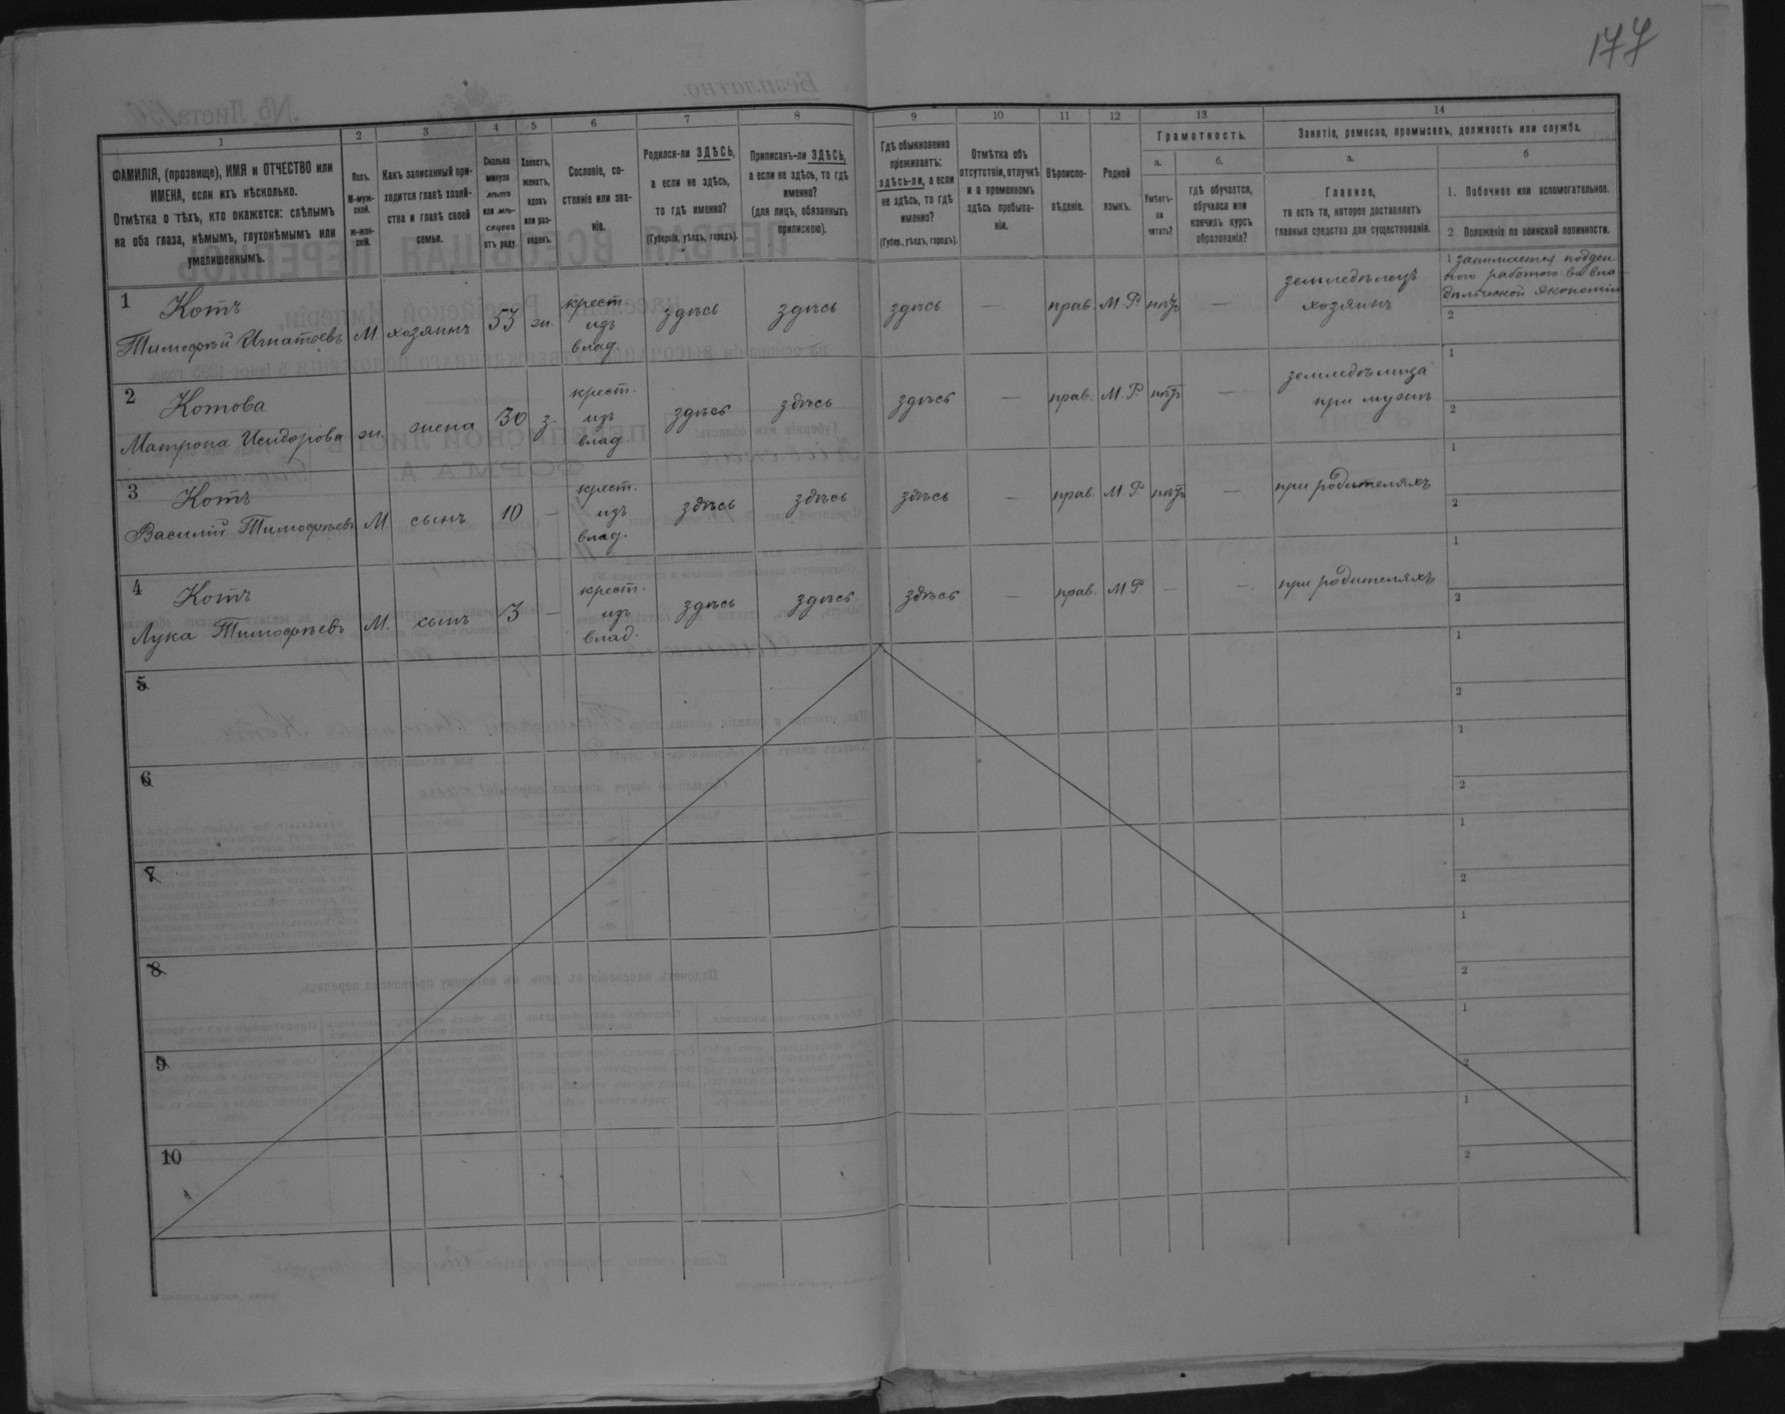 177
1
2
3
4
5
6
7
8
9
10
11
12
13
14
ФАМИЛІЯ, (прозвище), ИМЯ и ОТЧЕСТВО или
ИМЕНА, если ихъ нѣсколько.
Отмѣтка о тѣхъ, кто окажется: слѣпымъ
на оба глаза, нѣмымъ, глухонѣмымъ или
умалишеннымъ.
Полъ.
М-муж-
ской.
ж-жен-
скій.
Какъ записанный при-
ходится главѣ хозяй-
ства и главѣ своей
семьи.
Сколько
минуло
лѣтъ
или мѣ-
сяцевъ
отъ роду.
Холостъ,
женатъ,
вдовъ
или раз-
веденъ.
Сословіе, со-
стояніе или зва-
ніе.
Родился-ли ЗДѢСЬ,
а если не здѣсь,
то гдѣ именно?
(Губернія, уѣздъ, городъ).
Приписанъ-ли ЗДѢСЬ,
а если не здѣсь, то гдѣ
именно?
(для лицъ, обязанныхъ
припискою).
Гдѣ обыкновенно
проживаетъ:
здѣсь-ли, а если
не здѣсь, то гдѣ
именно?
(Губер., уѣздъ, городъ).
Отмѣтка объ
отсутствіи, отлучкѣ
и о временномъ
здѣсь пребыва-
ніи.
Вѣроиспо-
вѣданіе.
Родной
языкъ.
Грамотность.
а.
Умѣетъ-
ли
читать?
б.
гдѣ обучается,
обучался или
кончилъ курсъ
образованія?
Занятіе, ремесло, промыселъ, должность или служба.
а.
Главное,
то есть то, которое доставляетъ
главныя средства для существованія.
б
1. Побочное или вспомогательное.
2 Положеніе по воинской повинности.
1 Котъ
Тимофѣй Игнатовъ М хозяинъ 53 ж. крест изъ влад. здѣсь здѣсь здѣсь — прав. М.Р. нѣтъ — земледѣлецъ хозяинъ
1 занимается поден
ною работою во вла
дѣльческой Экономіи
2
2 Котова
Матрона Исидорова ж. жена 30 з. крест. изъ влад здѣсь здѣсь здѣсь — прав. М.Р. нѣтъ — земледѣлица при мужѣ
1
2
3 Котъ
Василій Тимофѣевъ М сынъ 10 — крест. изъ влад. здѣсь здѣсь здѣсь — прав. М.Р. нѣтъ — при родителяхъ
1
2
4 Котъ
Лука Тимофѣевъ М. сынъ 3 — крест. изъ влад. здѣсь здѣсь здѣсь — прав. М.Р — — при родителяхъ
1
2
5
1
2
6
1
2
7
1
2
8
1
2
9
1
2
10
1
2